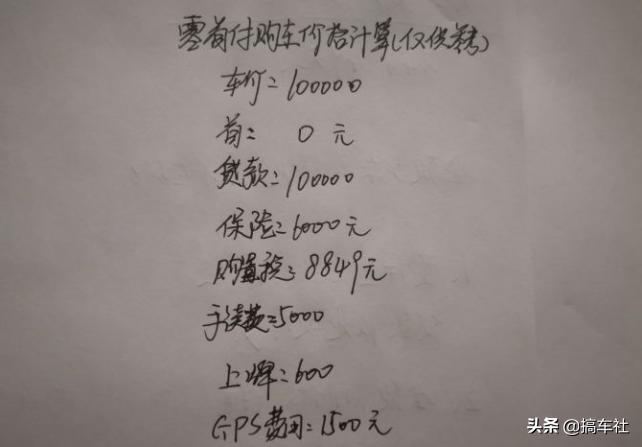 零首付购车价格计算(仅供参考)
车价=100000
首=0元
贷款=100000
保险=6000元
购置税=8849元
手续费=5000
上牌=600
GPS费用=1500元
头条 @搞车社